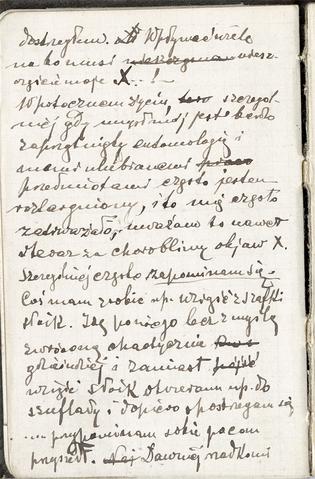 dostrzegłem. Wpływać wszelk
na to musi
szczęście moje X. !
W potocznem życiu szczegól
niej gdy umysł mój jest bardzo
zaprzątnięty entomologią i
memi ulubionemi
przedmiotami często jestem
roztargniony, i to mię często
zatrważa, uważam to nawet
za chorobliwy objaw X.
Szczególniej często zapominam się
Coś mam zrobić np. wziąść z szafki
słoik. Idę po niego lecz z myślą
zwróconą
gdzieindziej i zamiast
wziąść słoik otwieram np.
szuflady i dopiero spostrzegam się
.... przypominam sobie po com
przyszedł. Dawniej rzadkimi